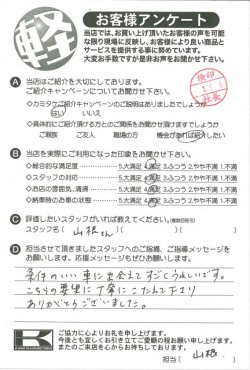 軽
お客様アンケート
当店では、お買い上げ頂いたお客様の声を可能
な限り現場に反映し、お客様により良い商品と
サービスを提供する事に努めています。
大変お手数ですが是非お声をお聞かせ下さい。
検印
社長
A 当店はご紹介を大切にしております。
ご紹介キャンペーンについてお聞かせ下さい。
◇カミタケご紹介キャンペーンの説明はありましたでしょうか
はい いいえ
◇具体的にご紹介頂ける方とのご関係をお聞かせ頂けますでしょうか
ご親族 ご友人 職場の方 機会があれば紹介したい
B 当店を実際にご利用になった印象をお聞かせ下さい。
◇総合的な満足度 5.大満足 4.満足 3.ふつう 2.やや不満 1.不満
◇スタッフの対応 5.大満足 4.満足 3.ふつう 2.やや不満 1.不満
◇お店の雰囲気、清掃 5.大満足 4.満足 3.ふつう 2.やや不満 1.不満
◇納車時のお車の状態 5.大満足 4.満足 3.ふつう 2.やや不満 1.不満
C 評価したいスタッフがいれば教えてください。(複数回答可)
スタッフ名( 山根さん )( )
D 担当させて頂きましたスタッフへのご指摘、ご指導メッセージを
お願いします。応援メッセージもぜひお願いします。
条件のいい車に出会えてすごくうれしいです。
こちらの要望に丁寧にこたえて下さり
ありがとうございました。
K
ご協力に心よりお礼を申し上げます。
今後とも宜しくお引き立てとご愛顧の程お願い申し上げます。
またのご来店を心からお待ちしております。
担当( 山根 )